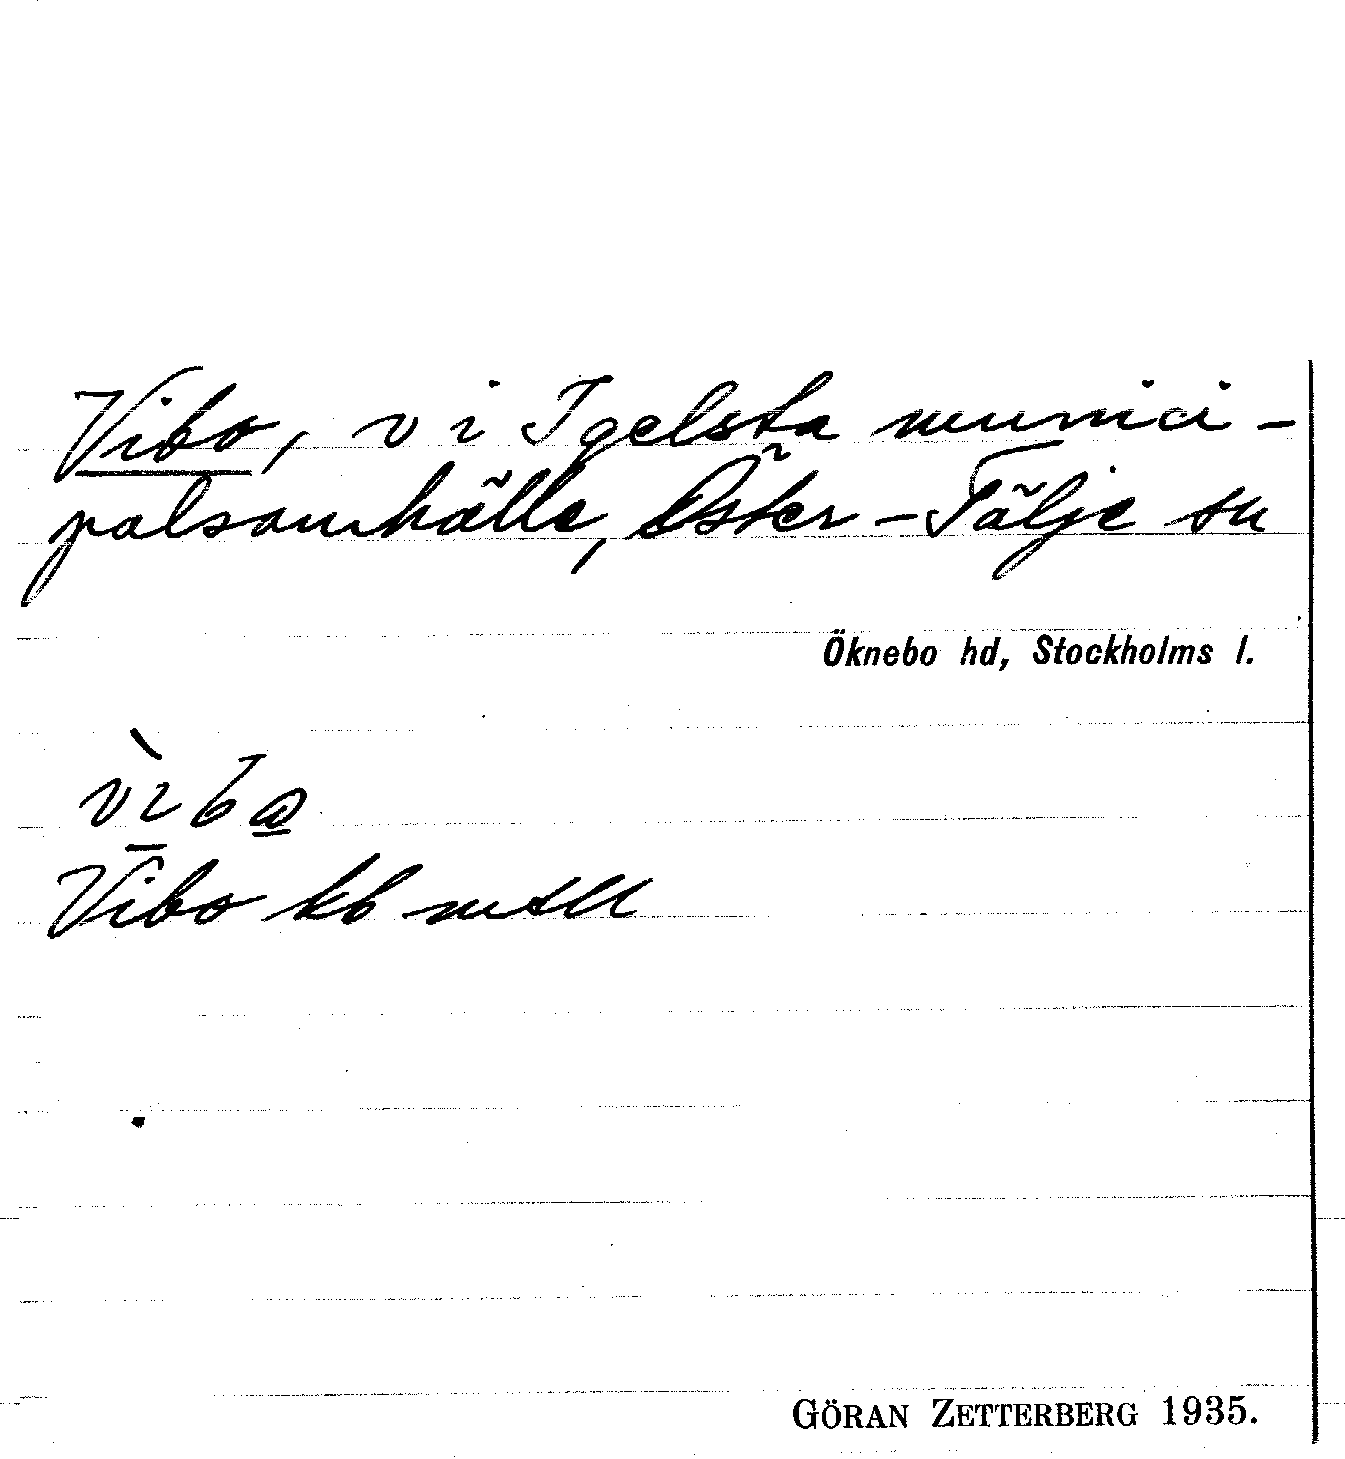 Vibo, v i Igelsta munici-
palsamhälle, Öster-Tälje sn
Öknebo hd, Stockholms l.
Vibo kb mtll
GÖRAN ZETTERBERG 1935.